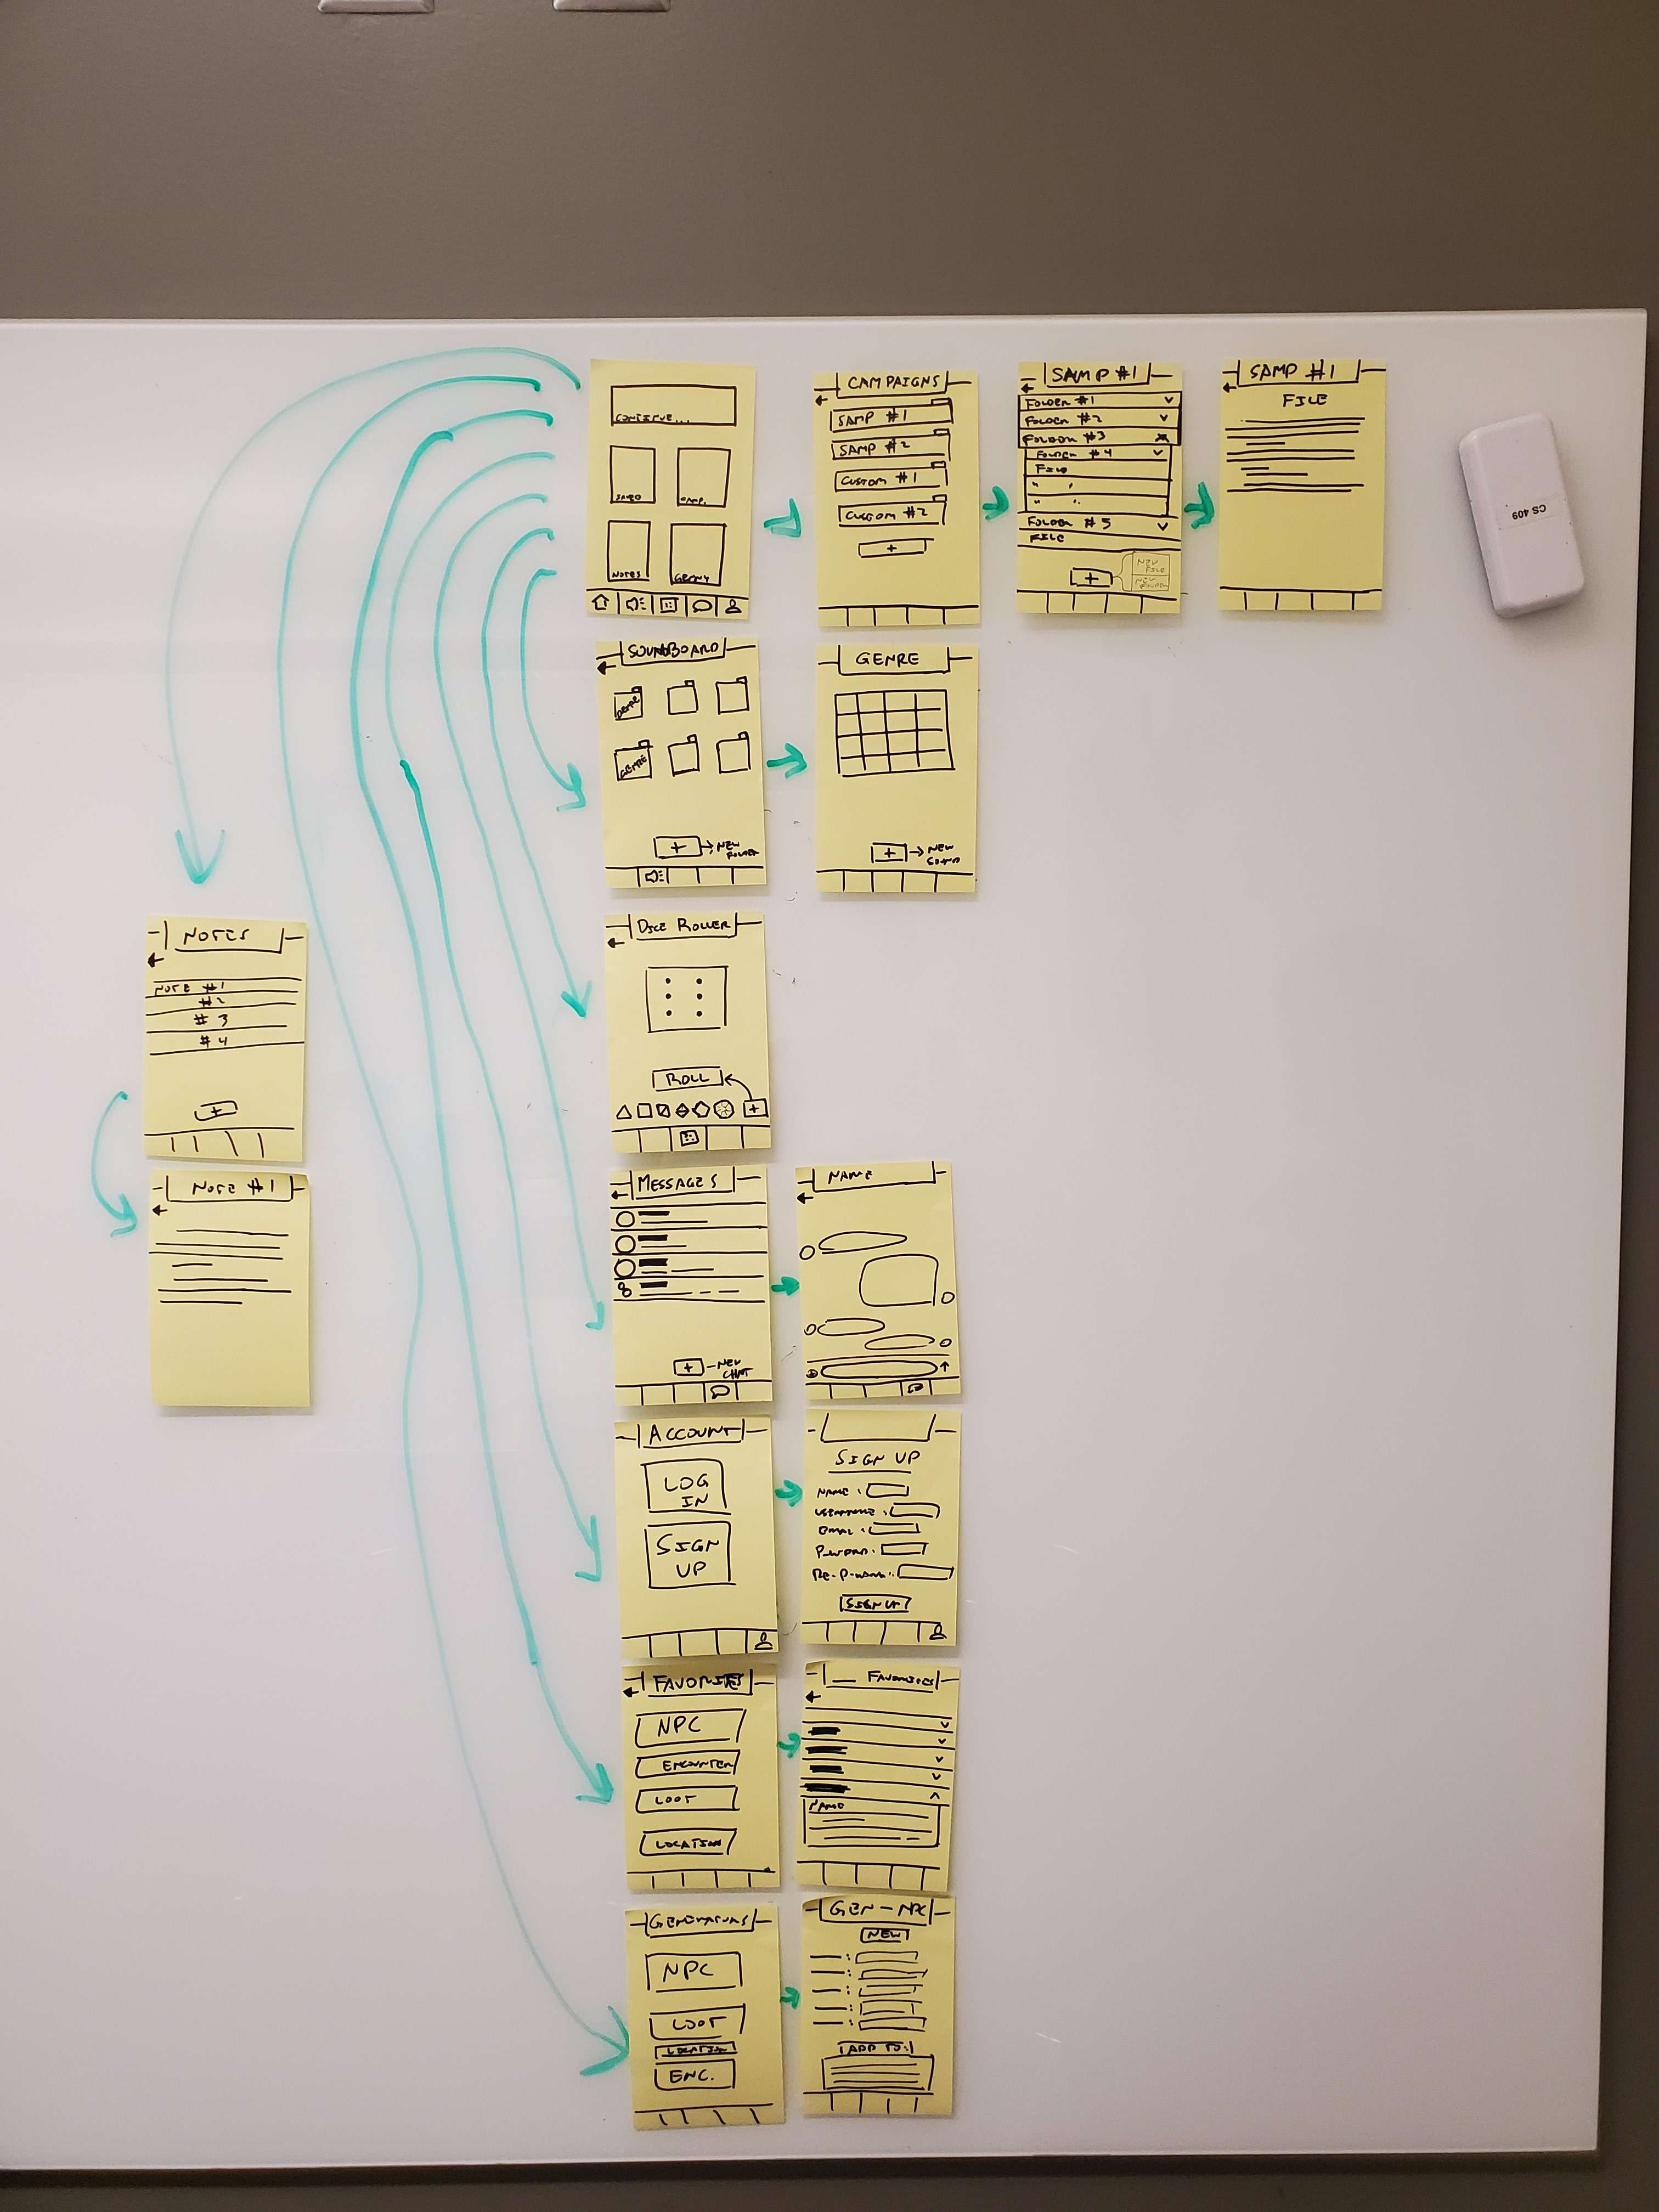 CONTINUE...
CAMP.
NOTES
CAMPAIGNS
SAMP #1
SAMP #2
CUSTOM #1
CUSTOM #2
+
SAMP #1
FOLDER #1
FOLDER #2
FOLDER #3
FOLDER #4
FILE
" "
" "
FOLDER #5
FILE
+
NEW
FILE
NEW
FOLDER
SAMP #1
FILE
CS 409
SOUNDBOARD
GENRE
GENRE
+ → NEW
FOLDER
GENRE
+ → NEW
SOUND
NOTES
NOTE #1
#2
#3
#4
+
NOTE #1
DICE ROLLER
ROLL
+
MESSAGES
+ - NEW
CHAT
NAME
ACCOUNT
LOG
IN
SIGN
UP
SIGN UP
NAME:
USERNAME:
EMAIL:
RE-P-WORD:
SIGN UP
FAVORITES
NPC
ENCOUNTER
LOOT
LOCATION
__ FAVORITES
NAME
GENERATORS
NPC
LOOT
LOCATION
ENC.
GEN-NPC
NEW
ADD TO: